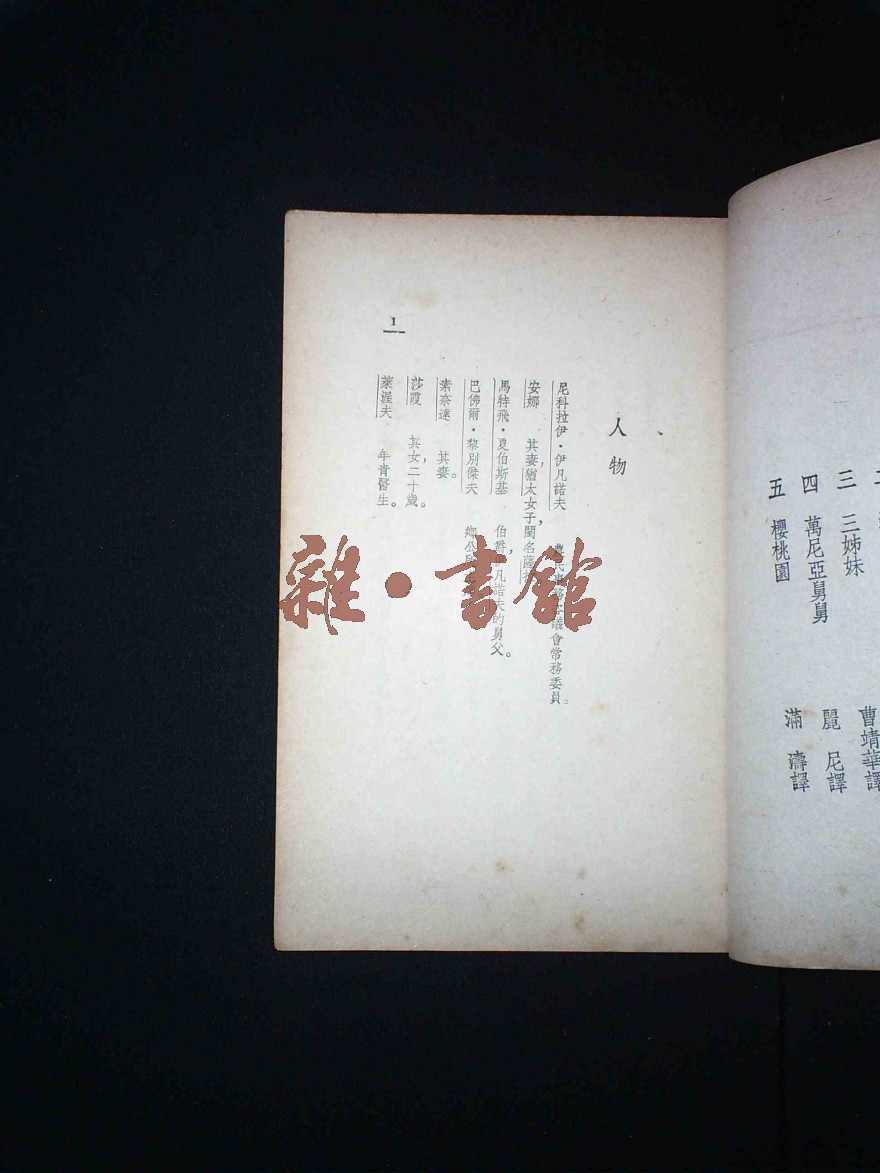 三 三姊妹 曹靖華譯
四 萬尼亞舅舅 麗尼譯
五 櫻桃園 滿濤譯
人物
尼科拉伊・伊凡諾夫 議會常務委員。
安娜 其妻,猶太女子,閨名
馬特飛・夏伯斯基 伯爵,伊凡諾夫的舅父。
巴佛爾・黎別傑夫 鄉公所
素奈達 其妻。
莎霞 其女,二十歲。
萊渥夫 年青醫生。
1
雜・書館